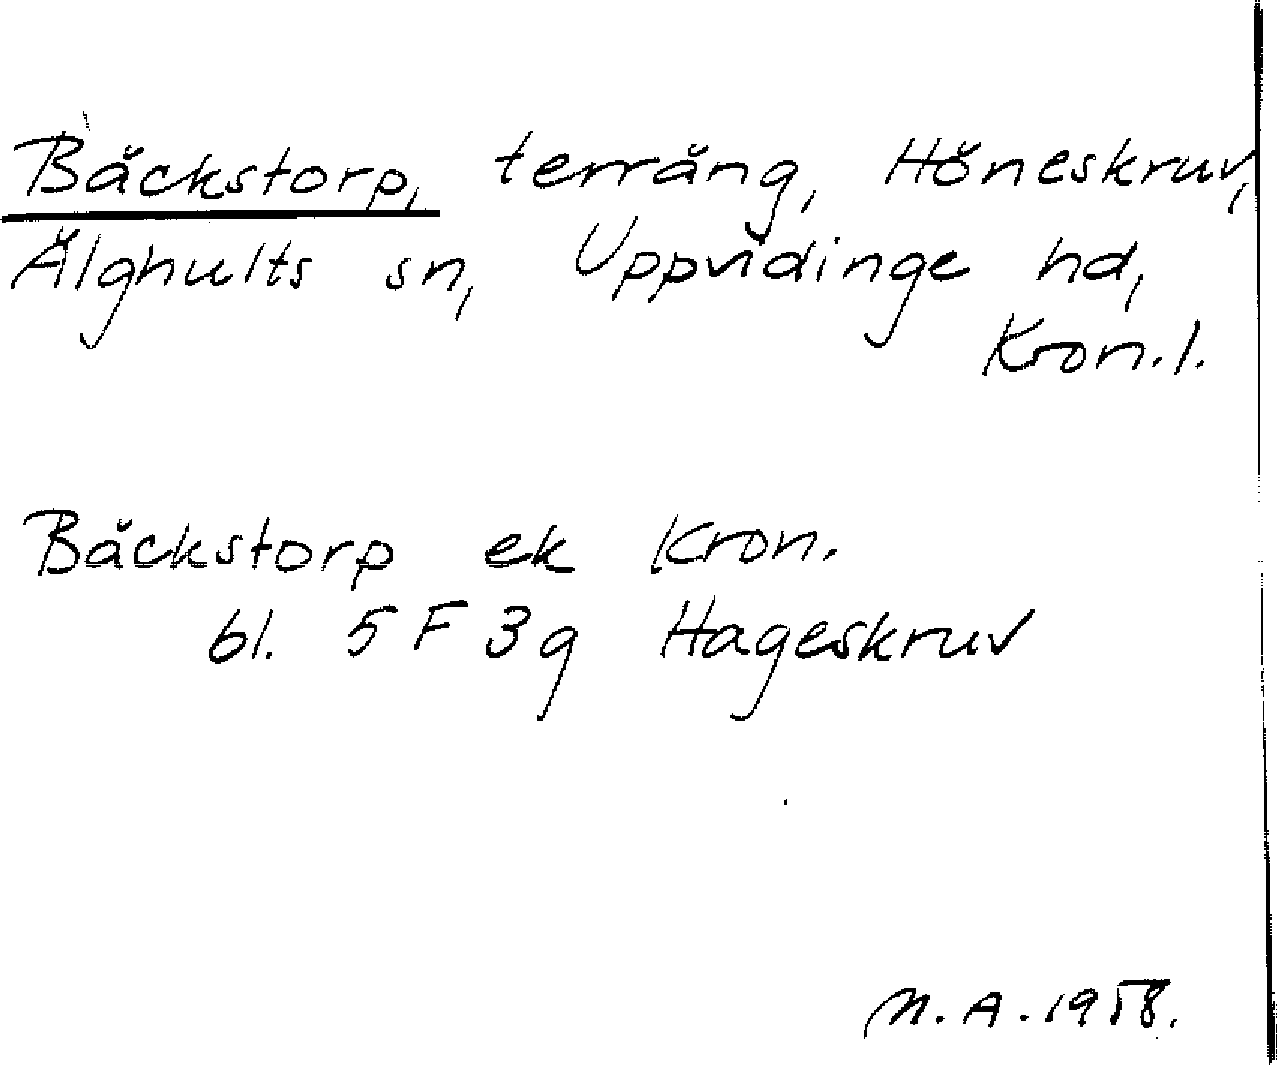 Bäckstorp, terräng, Höneskruv,
Älghults sn, Uppvidinge hd,
Kron.l.
Bäckstorp ek Kron.
bl. 5 F 3g Hageskruv
M.A. 1958.